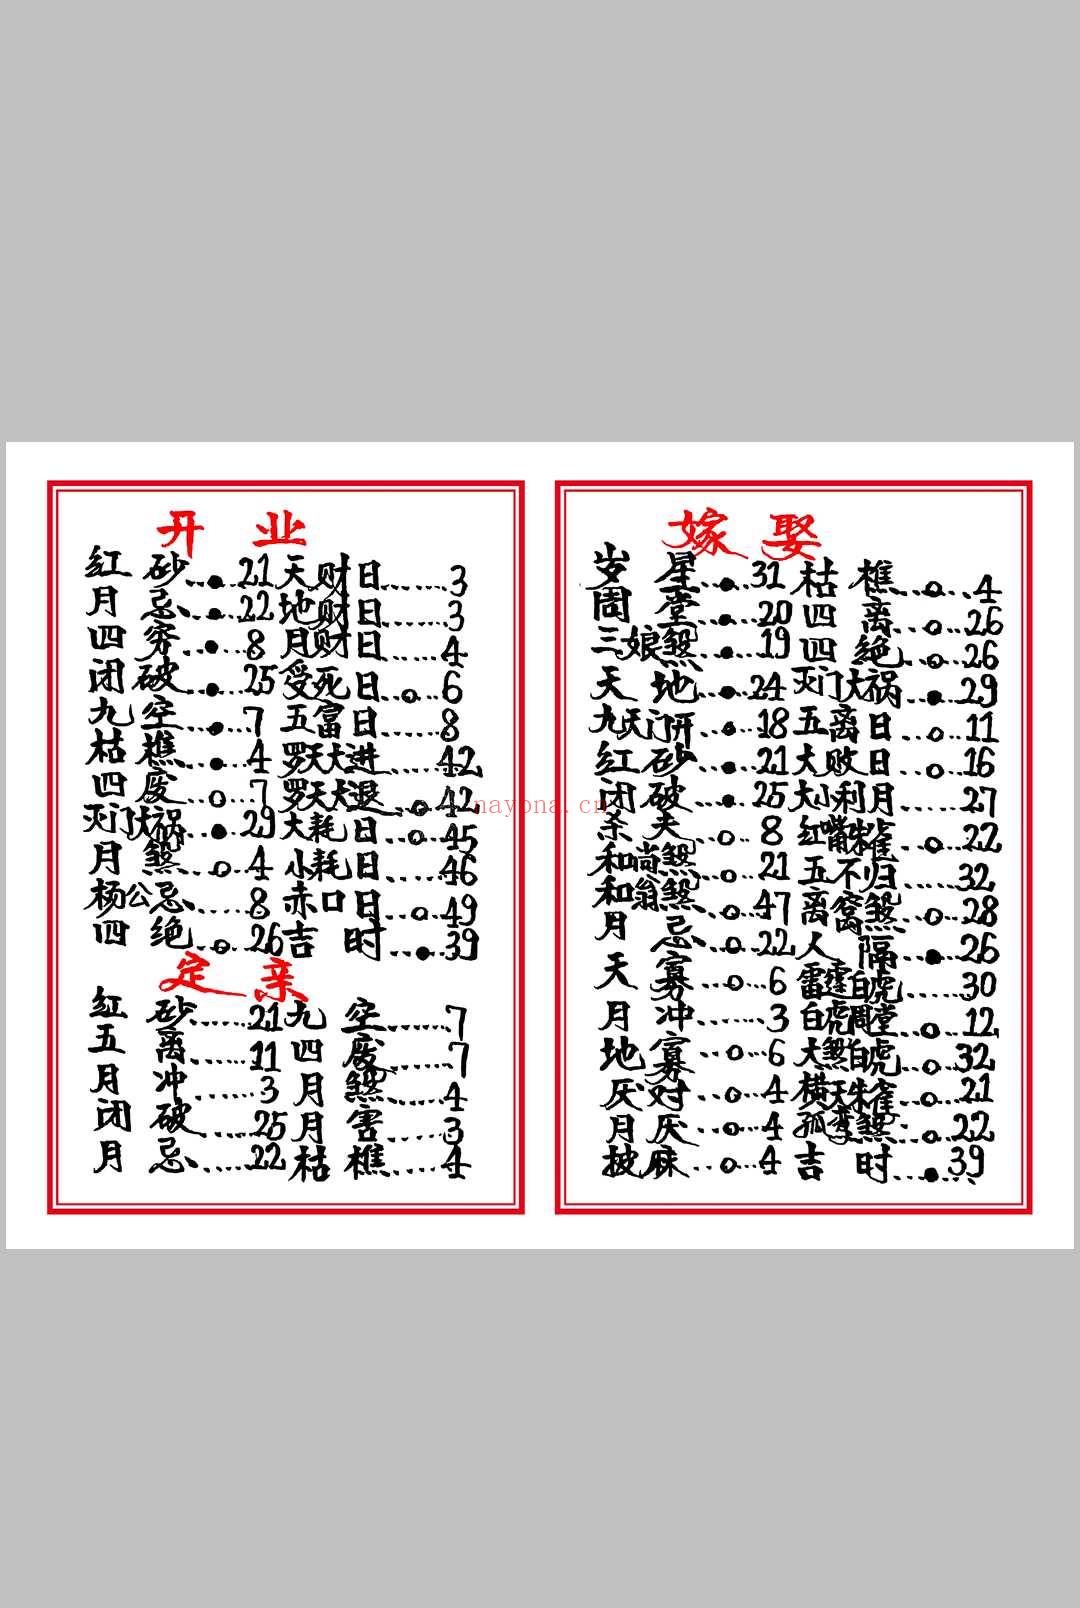 开 业
红 砂...●...21 天财日......3
月 忌...●...22 地财日......3
四 穷...●...8 月财日......4
闭 破...●...25 受死日..○..6
九 空...●...7 五富日......8
枯 樵...●...4 罗天大进......42
四 废...○...7 罗天大退..○..42
灭门大祸..●..29 大耗日..○..45
月 煞...○...4 小耗日......46
杨公忌......8 赤口日..○..49
四 绝...○...26 吉 时..●..39
定 亲
红 砂......21 九 空......7
五 离......11 四 废......7
月 冲......3 月 煞......4
闭 破......25 月 害......3
月 忌......22 枯 樵......4
嫁 娶
岁 星...●...31 枯 樵...○...4
周 堂...●...20 四 离...○...26
三娘煞...●...19 四 绝...○...26
天 地...●...24 灭门大祸..●..29
九天门开..●..18 五离日..○..11
红 砂...●...21 大败日..○..16
闭 破...●...25 大小利月......27
杀 夫...○...8 红嘴朱雀..○..22
和尚煞...○...21 五不归......32
和翁煞...○...47 离窝煞..○..28
月 忌...○...22 人 隔..●..26
天 寡...○...6 雷霆白虎......30
月 冲......3 白虎周堂..○..12
地 寡...○...6 大煞白虎..○..32
厌 对...○...4 横天朱雀..○..21
月 厌...○...4 孤鸾煞..○..22
披 麻...○...4 吉 时..●..39
nayona.cn